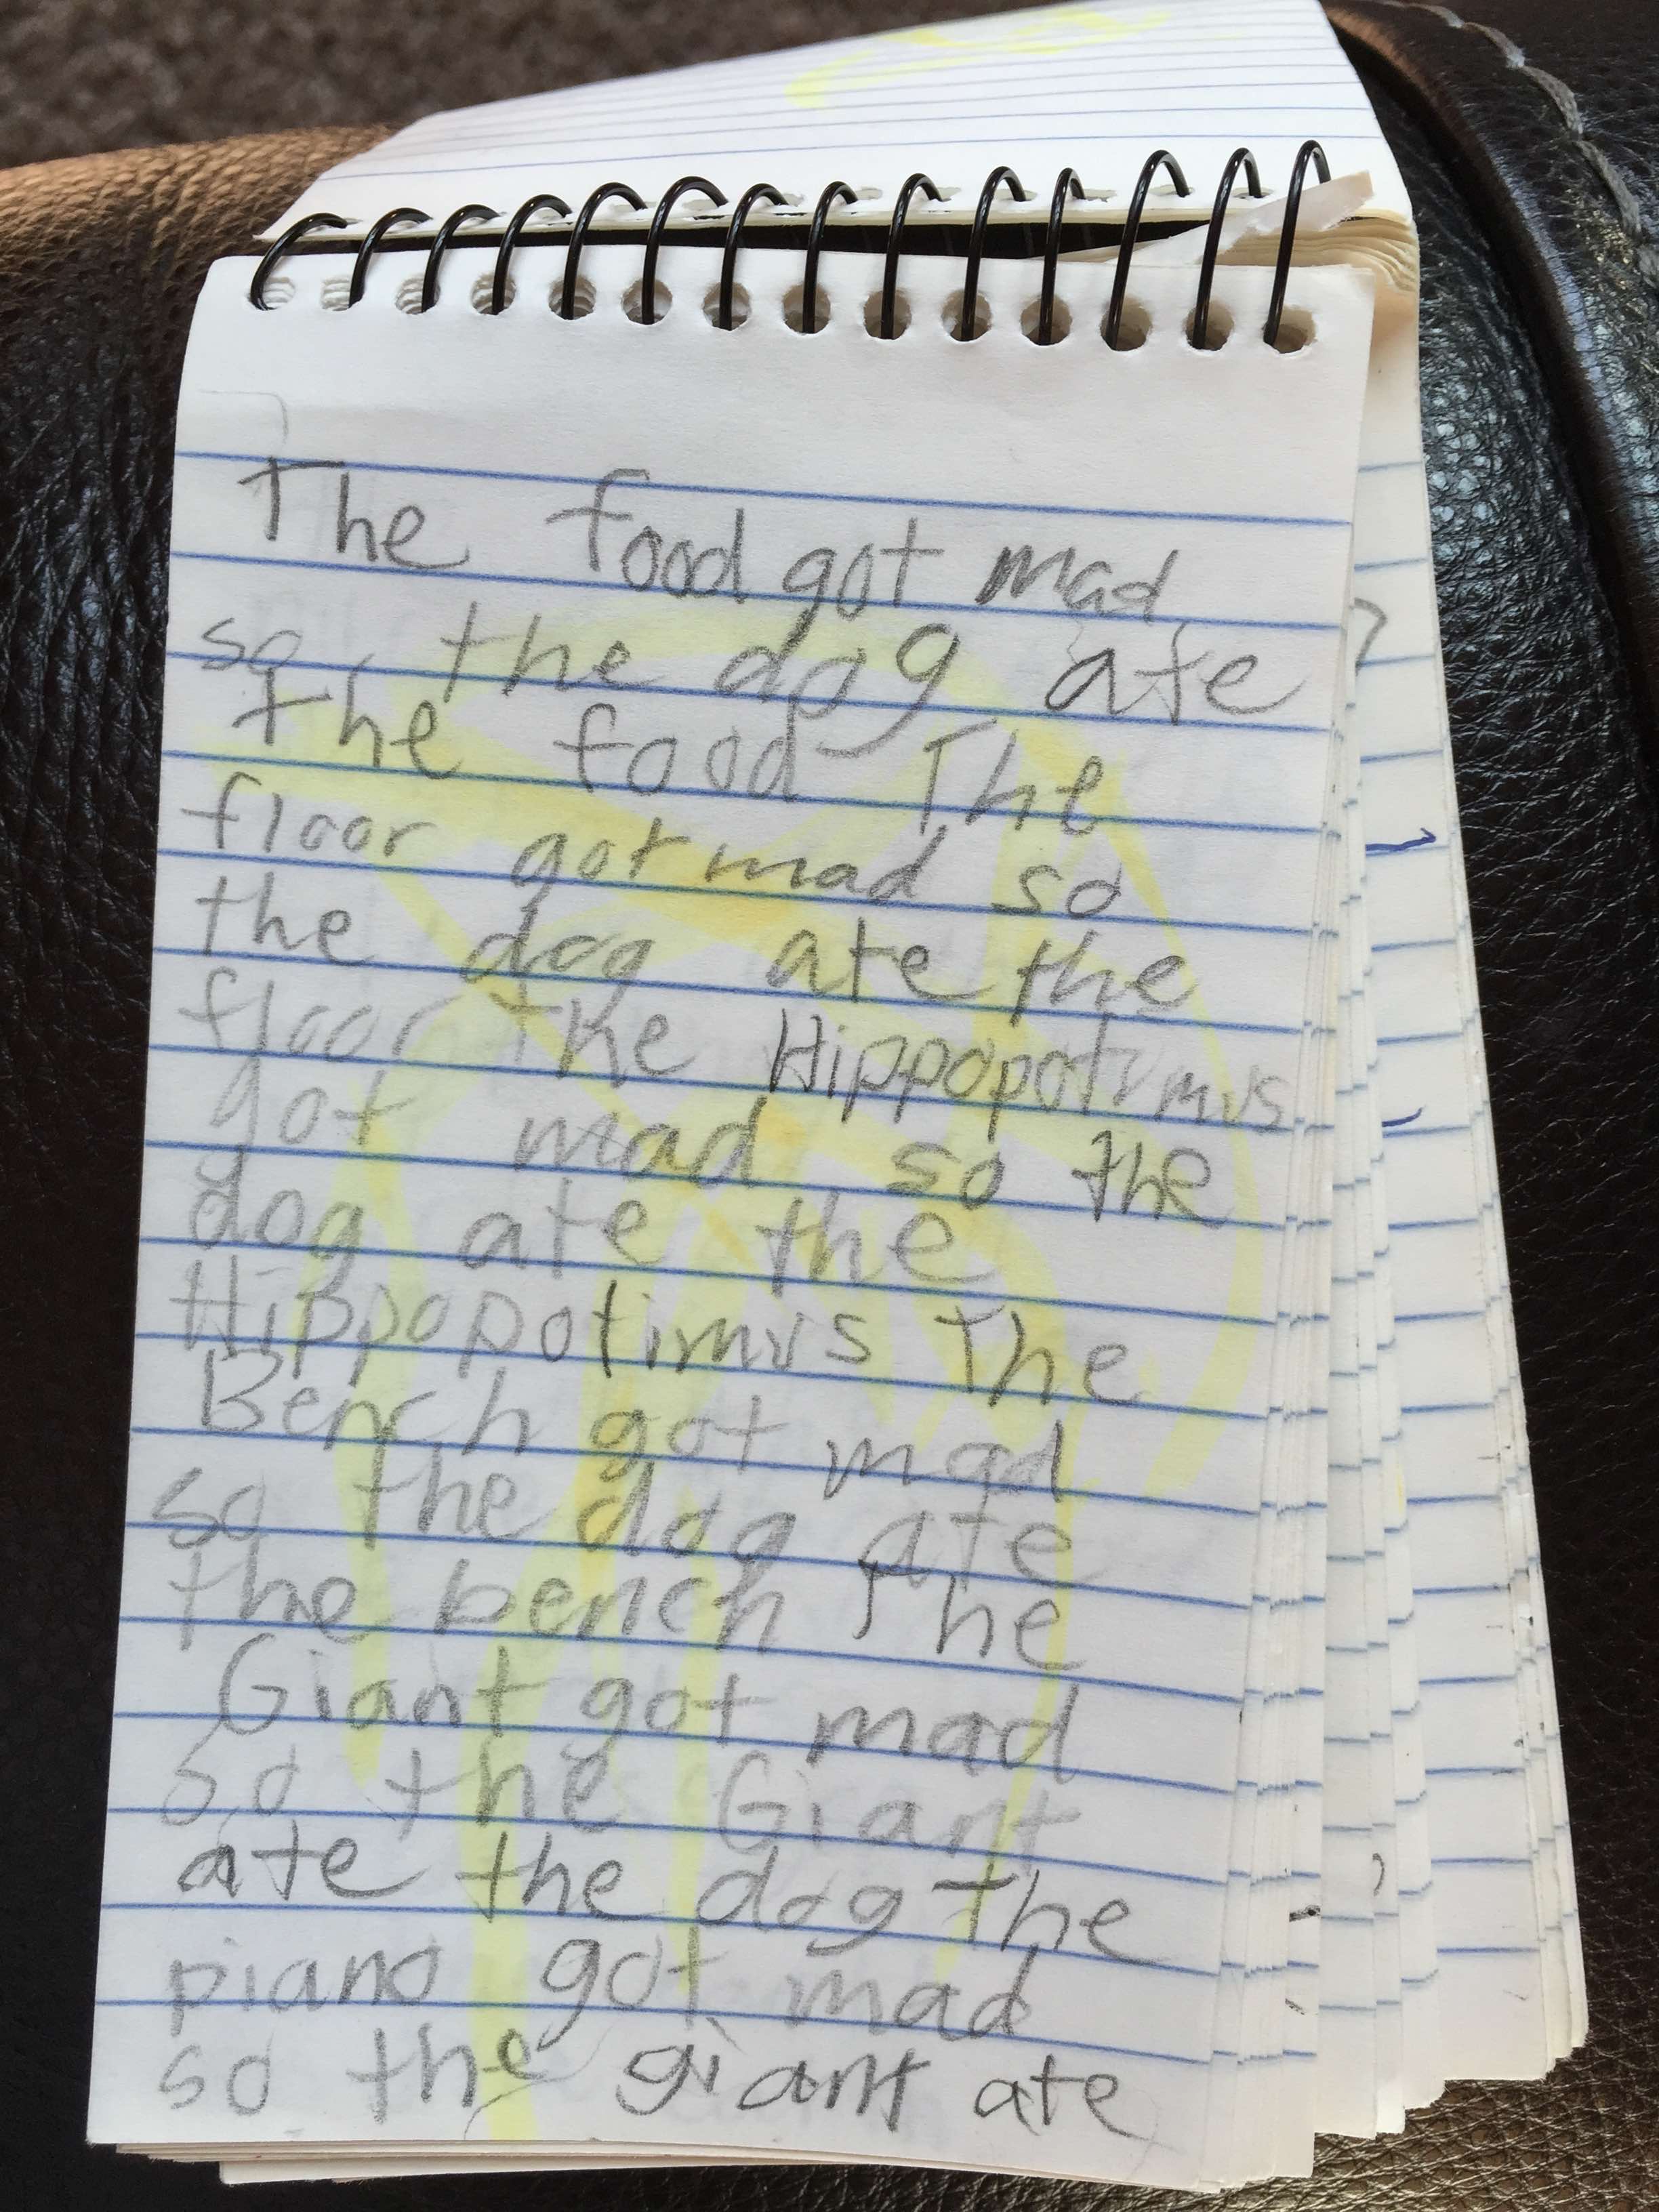 The food got mad
so the dog ate
the food The
floor got mad so
the dog ate the
floor the Hippopotimus
got mad so the
dog ate the
Hippopotimus The
Bench got mad
so the dog ate
the bench The
Giant got mad
so the Giant
ate the dog The
piano got mad
so the giant ate